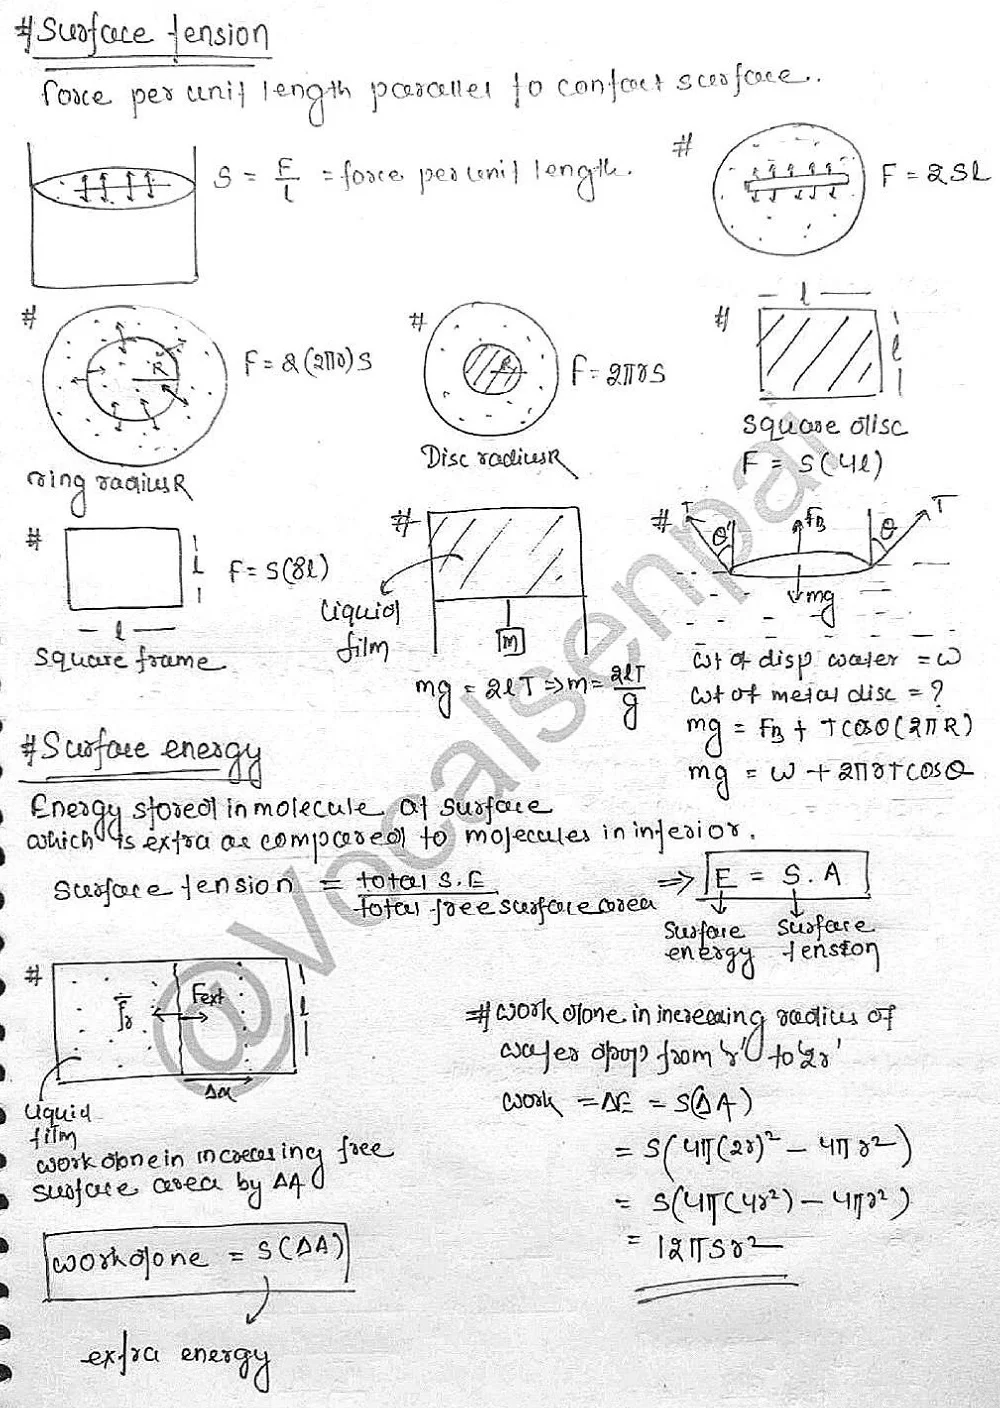 # Surface tension
force per unit length parallel to contact surface..
S = F/l = force per unit length.
#
F = 2Sl
#
R
F = 2(2πr)S
ring radius R
#
R
F = 2πrS
Disc radius R
#
l
l
square disc
F = S(4l)
#
l
F = S(8l)
l
square frame
#
liquid
film
m
mg = 2lT ⇒ m = 2lT/g
#
T
θ
FB
θ
T
mg
wt of disp water = w
wt of metal disc = ?
mg = FB + Tcosθ(2πR)
mg = w + 2πrTcosθ
# Surface energy
Energy stored in molecule at surface
which is extra as compared to molecules in interior.
surface tension = total S.E/total free surface area
⇒ E = S.A
surface energy
surface tension
#
Fext
l
liquid
film
work done in increasing free
surface area by ΔA
work done = S(ΔA)
extra energy
# work done in increasing radius of
water drop from 'r' to '2r'
work = ΔE = S(ΔA)
= S(4π(2r)² - 4πr²)
= S(4π(4r²) - 4πr²)
= 12πSr²
@Vocalsenpai